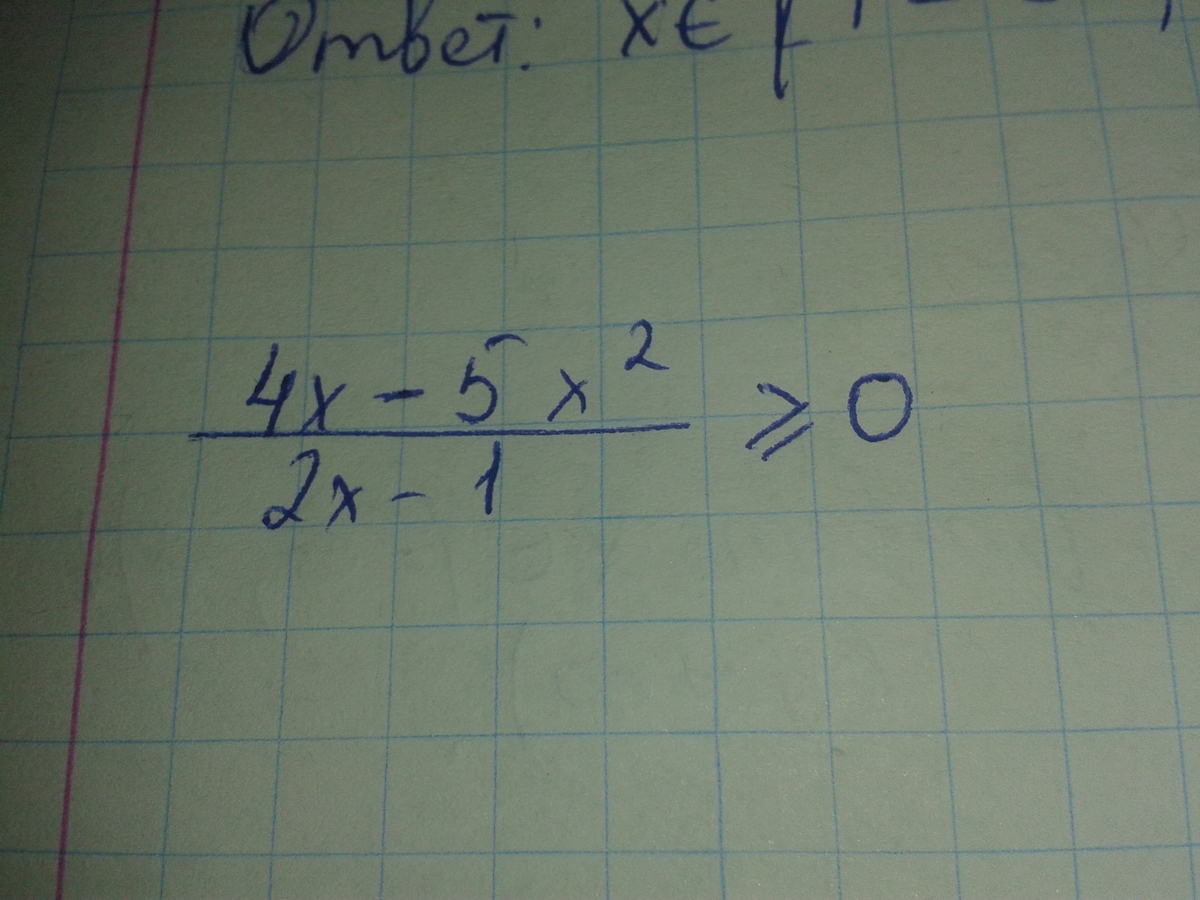 Ответ: x∈
4x - 5x²
2x - 1
≥ 0